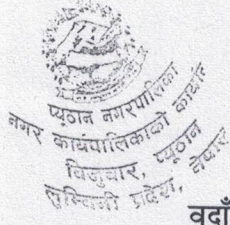 प्यूठान नगरपालिका
नगर कार्यपालिकाको कार्यालय
विजुवार, प्यूठान
लुम्बिनी प्रदेश, नेपाल
वदाँ